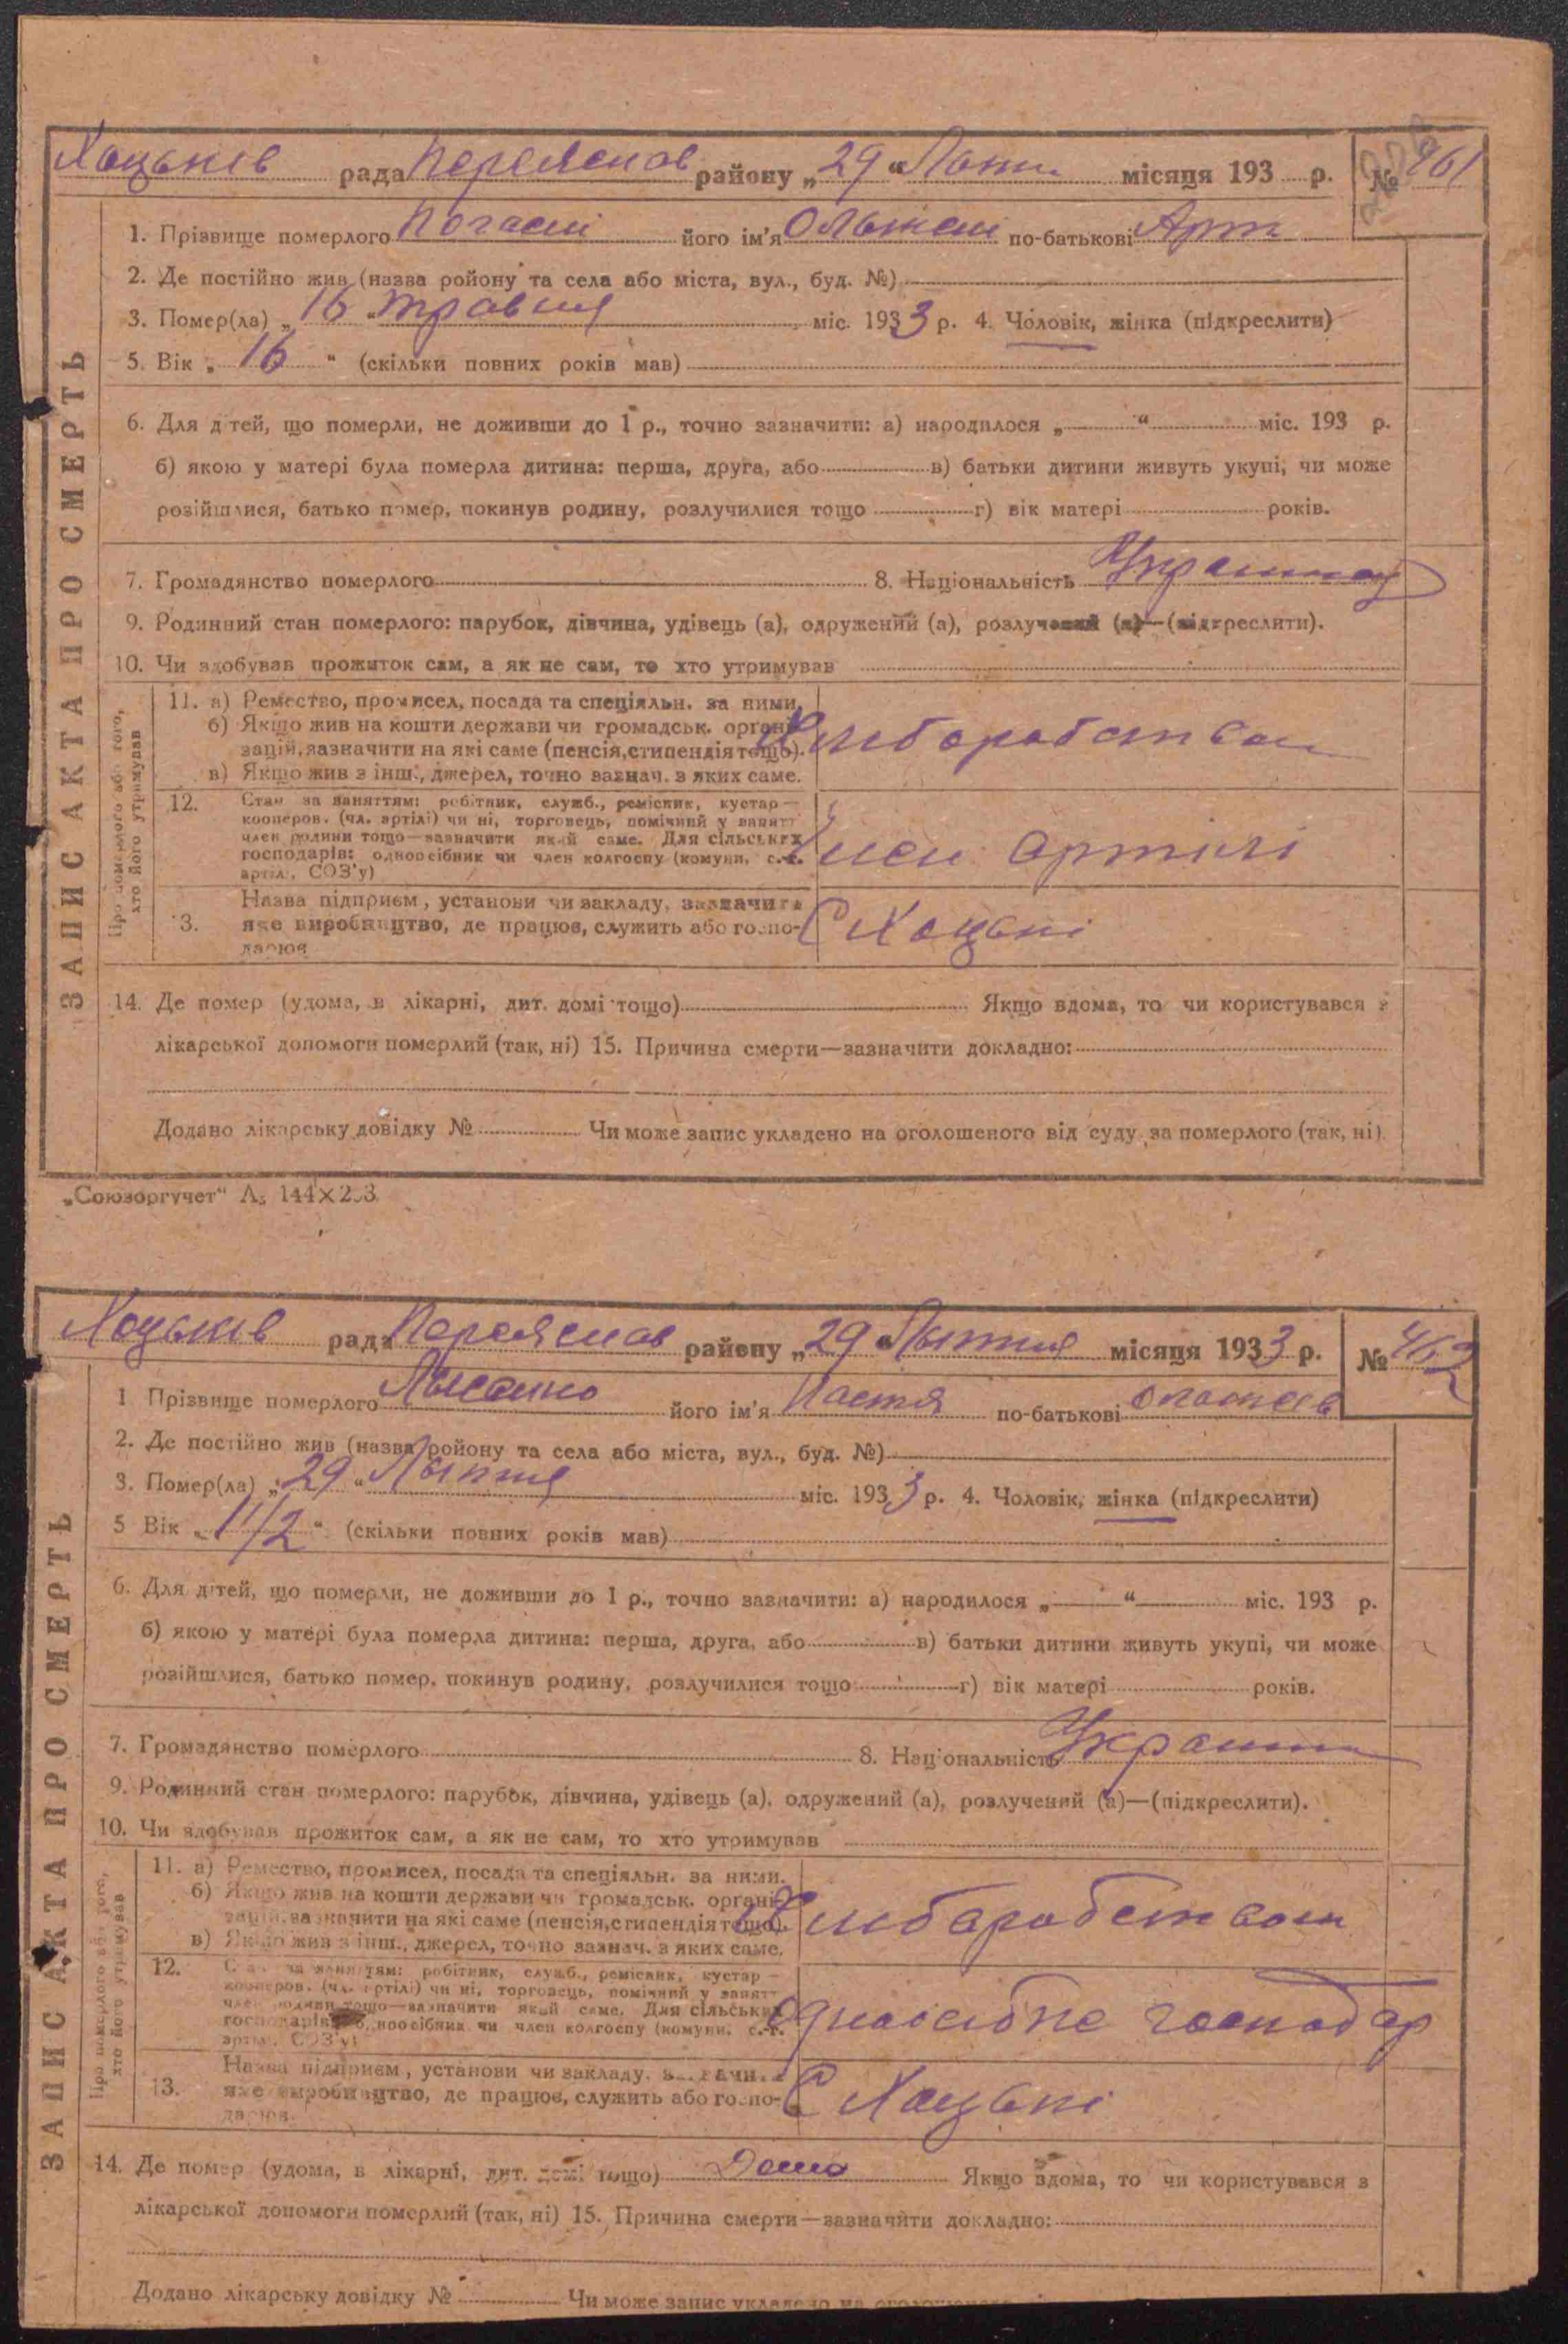 ЗАПИС АКТА ПРО СМЕРТЬ
Хоцьків рада Переяслав району „29“ місяця 193 р. № 461
1. Прізвище померлого його ім'я по-батькові Арт
2. Де постійно жив (назва ройону та села або міста, вул., буд. №)
3. Помер(ла) „16“ травня міс. 1933 р. 4. Чоловік, жінка (підкреслити)
5. Вік „16“ (скільки повних років мав)
6. Для дітей, що померли, не доживши до 1 р., точно зазначити: а) народилося „ “ міс. 193 р.
б) якою у матері була померла дитина: перша, друга, або в) батьки дитини живуть укупі, чи може
розійшлися, батько помер, покинув родину, розлучилися тощо г) вік матері років.
7. Громадянство померлого 8. Національність
9. Родинний стан померлого: парубок, дівчина, удівець (а), одружений (а), розлучений (а)—(підкреслити).
10. Чи здобував прожиток сам, а як не сам, то хто утримував
Про померлого або того,
хто його утримував
11. а) Ремество, промисел, посада та спеціяльн. за ними.
б) Якщо жив на кошти держави чи громадськ. органі-
зацій, зазначити на які саме (пенсія, стипендія тощо).
в) Якщо жив з інш., джерел, точно зазнач. з яких саме.
Хлиборобством
12. Стан за заняттям: робітник, служб., ремісник, кустар—
кооперов. (чл. артілі) чи ні, торговець, помічний у занятт
член родини тощо—зазначити який саме. Для сільських
господарів: одноосібник чи член колгоспу (комуни, с.-г.
артілі, СОЗ'у)
Член Артілі
13. Назва підприєм, установи чи закладу, зазначити
яке виробництво, де працює, служить або госпо-
дарює
С Хоцьки
14. Де помер (удома, в лікарні, дит. домі тощо) Якщо вдома, то чи користувався з
лікарської допомоги померлий (так, ні) 15. Причина смерти—зазначити докладно:
Додано лікарську довідку № Чи може запис укладено на оголошеного від суду за померлого (так, ні).
„Союзоргучет“
ЗАПИС АКТА ПРО СМЕРТЬ
Хоцьків рада Переяслав району „29“ Липня місяця 1933 р. № 462
1 Прізвище померлого його ім'я Настя по-батькові
2. Де постійно жив (назва ройону та села або міста, вул., буд. №)
3. Помер(ла) „29“ Липня міс. 1933 р. 4. Чоловік, жінка (підкреслити)
5 Вік „1 1/2“ (скільки повних років мав)
6. Для дітей, що померли, не доживши до 1 р., точно зазначити: а) народилося „ “ міс. 193 р.
б) якою у матері була померла дитина: перша, друга, або в) батьки дитини живуть укупі, чи може
розійшлися, батько помер, покинув родину, розлучилися тощо г) вік матері років.
7. Громадянство померлого 8. Національність
9. Родинний стан померлого: парубок, дівчина, удівець (а), одружений (а), розлучений (а)—(підкреслити).
10. Чи здобував прожиток сам, а як не сам, то хто утримував
Про померлого або того,
хто його утримував
11. а) Ремество, промисел, посада та спеціяльн. за ними.
б) Якщо жив на кошти держави чи громадськ. органі-
зацій, зазначити на які саме (пенсія, стипендія тощо).
в) Якщо жив з інш., джерел, точно зазнач. з яких саме.
Хлибаробством
12. Стан за заняттям: робітник, служб., ремісник, кустар—
кооперов. (чл. артілі) чи ні, торговець, помічний у занятт
член родини тощо—зазначити який саме. Для сільських
господарів: одноосібник чи член колгоспу (комуни, с.-г.
артілі, СОЗ'у)
господар
13. Назва підприєм, установи чи закладу, зазначити
яке виробництво, де працює, служить або госпо-
дарює.
С Хоцьки
14. Де помер (удома, в лікарні, дит. домі тощо) Дома Якщо вдома, то чи користувався з
лікарської допомоги померлий (так, ні) 15. Причина смерти—зазначити докладно:
Додано лікарську довідку № Чи може запис укладено на